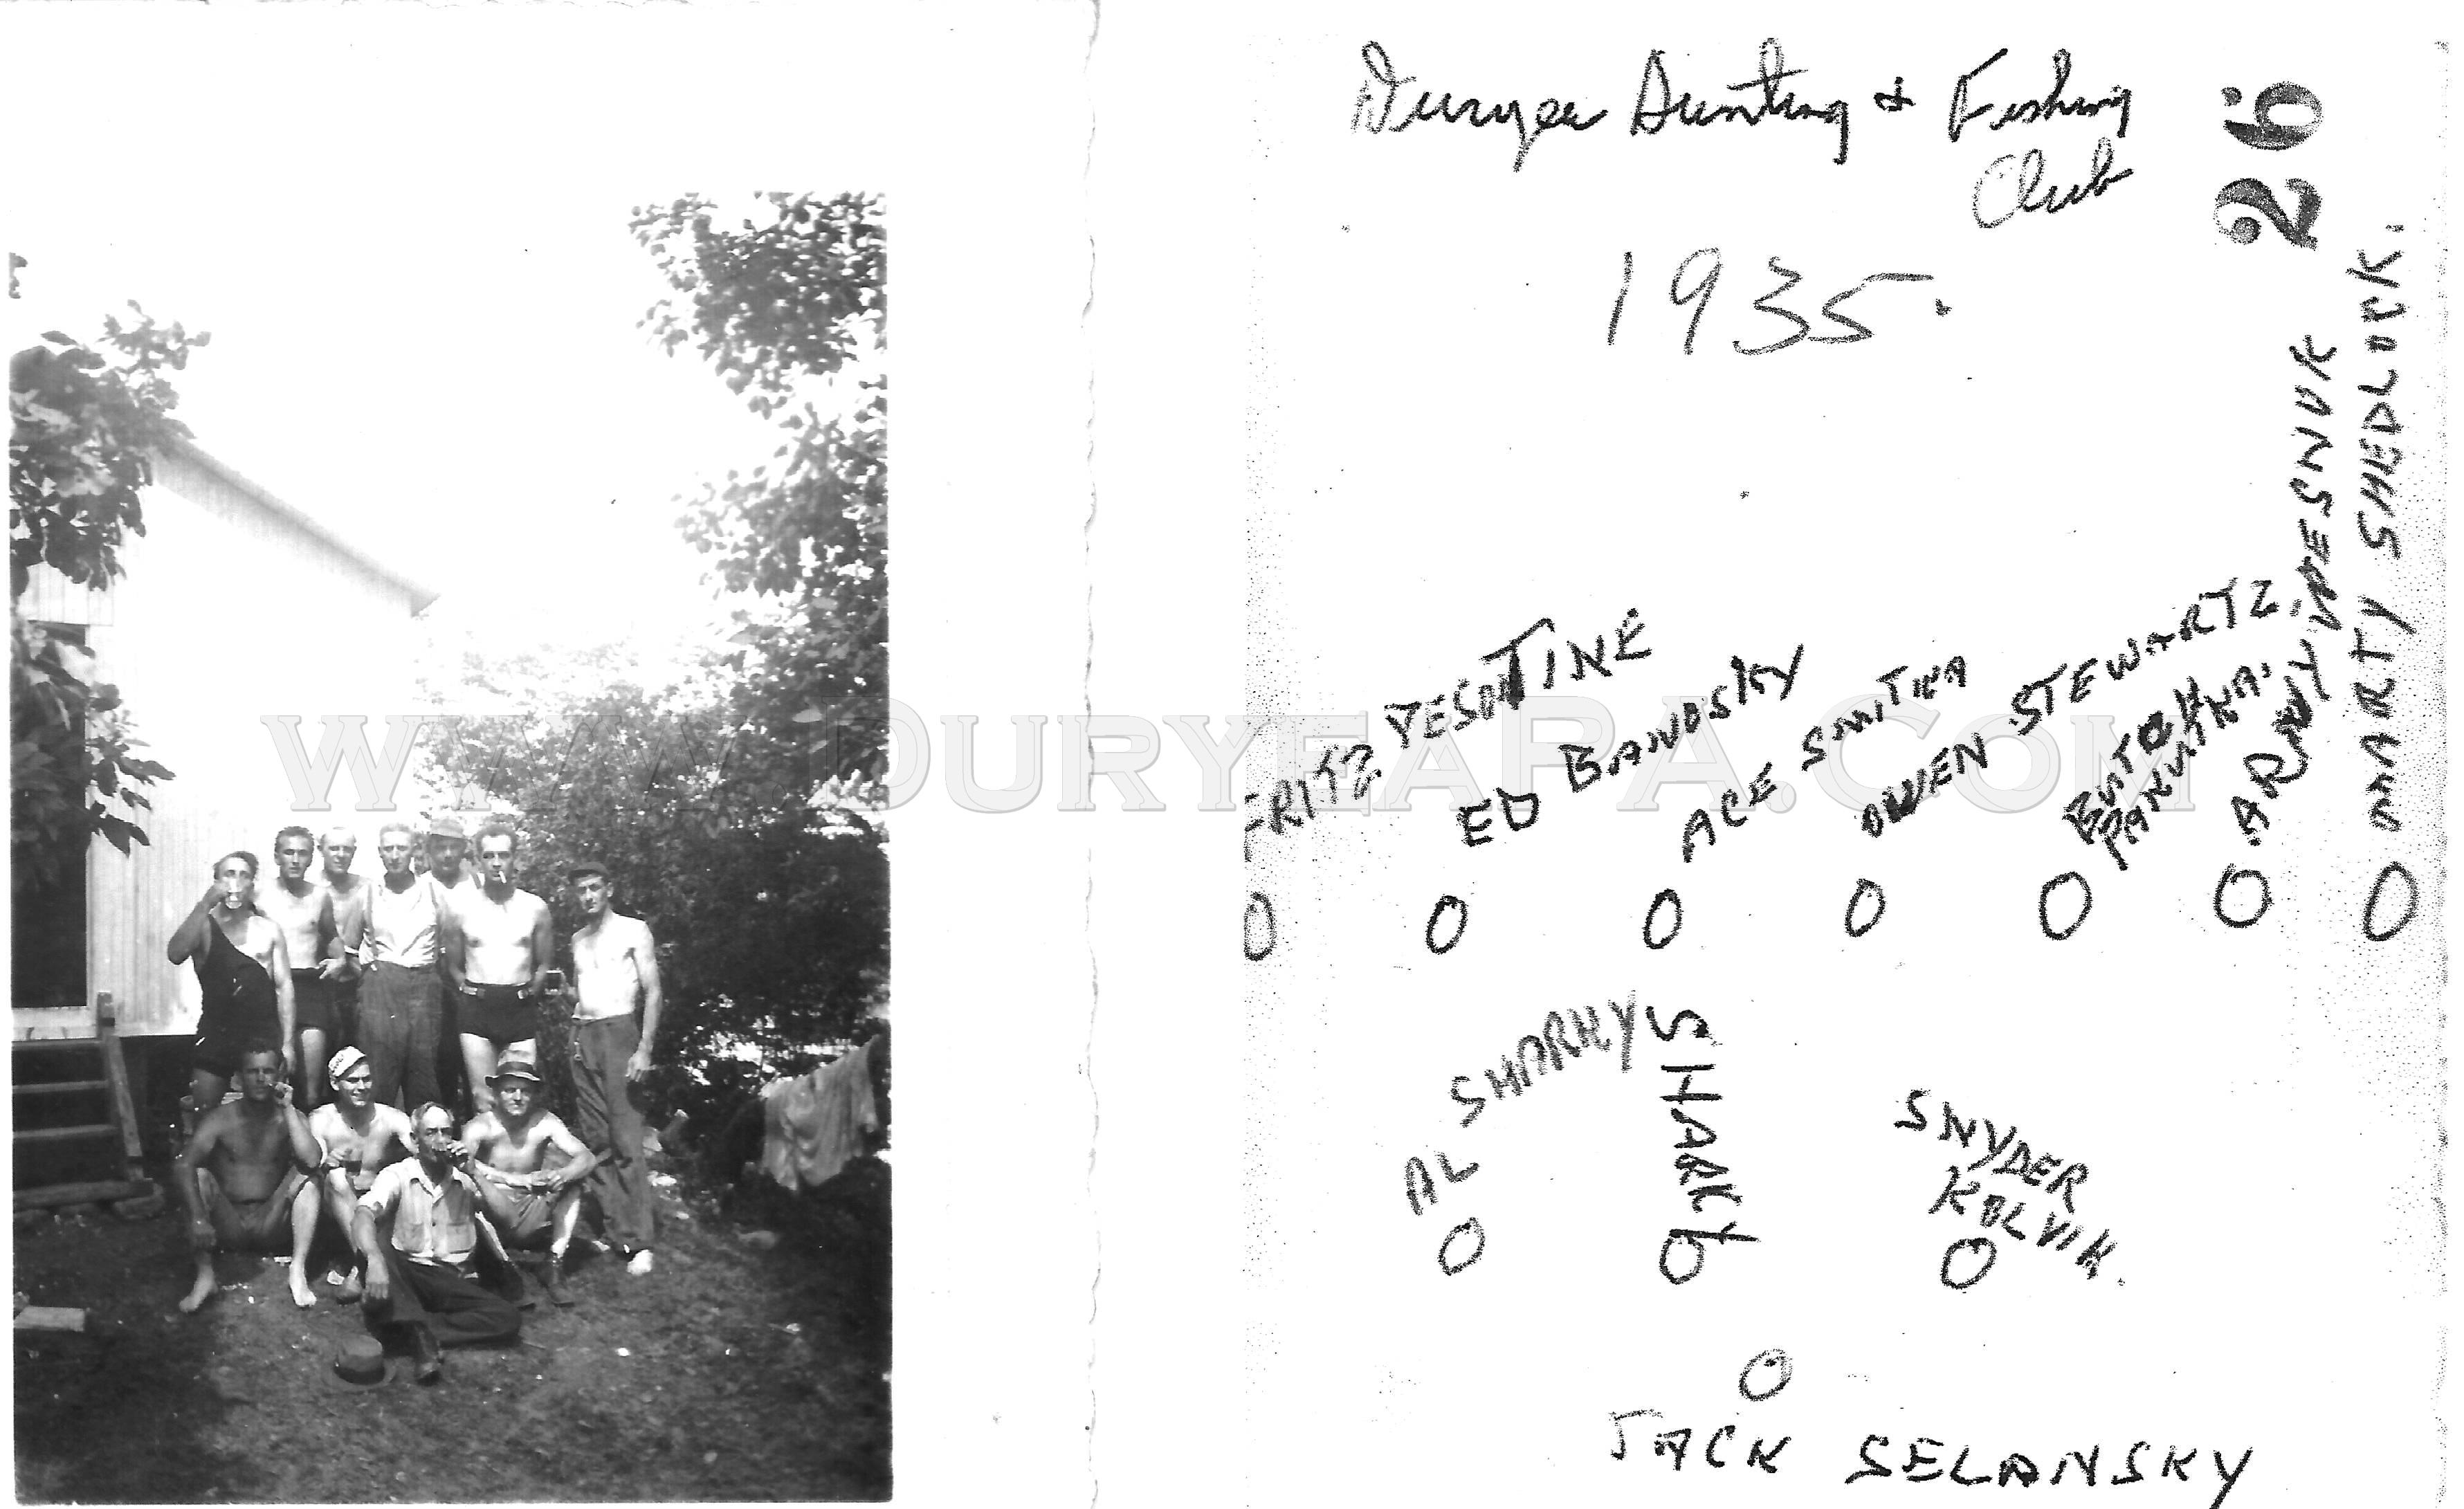 Duryea Hunting & Fishing
Club
26
1935.
FRITZ YESANTINE
ED BANOSKY
ACE SMITKA
OWEN STEWARTZ.
BUTCH
PANUTKA.
ARNNY UPESNOK
MARTY SHEDLOCK.
WWW.DURYEAPA.COM
AL SHARKY
SHARKY
SNYDER
KOLVIK.
JACK SELANSKY